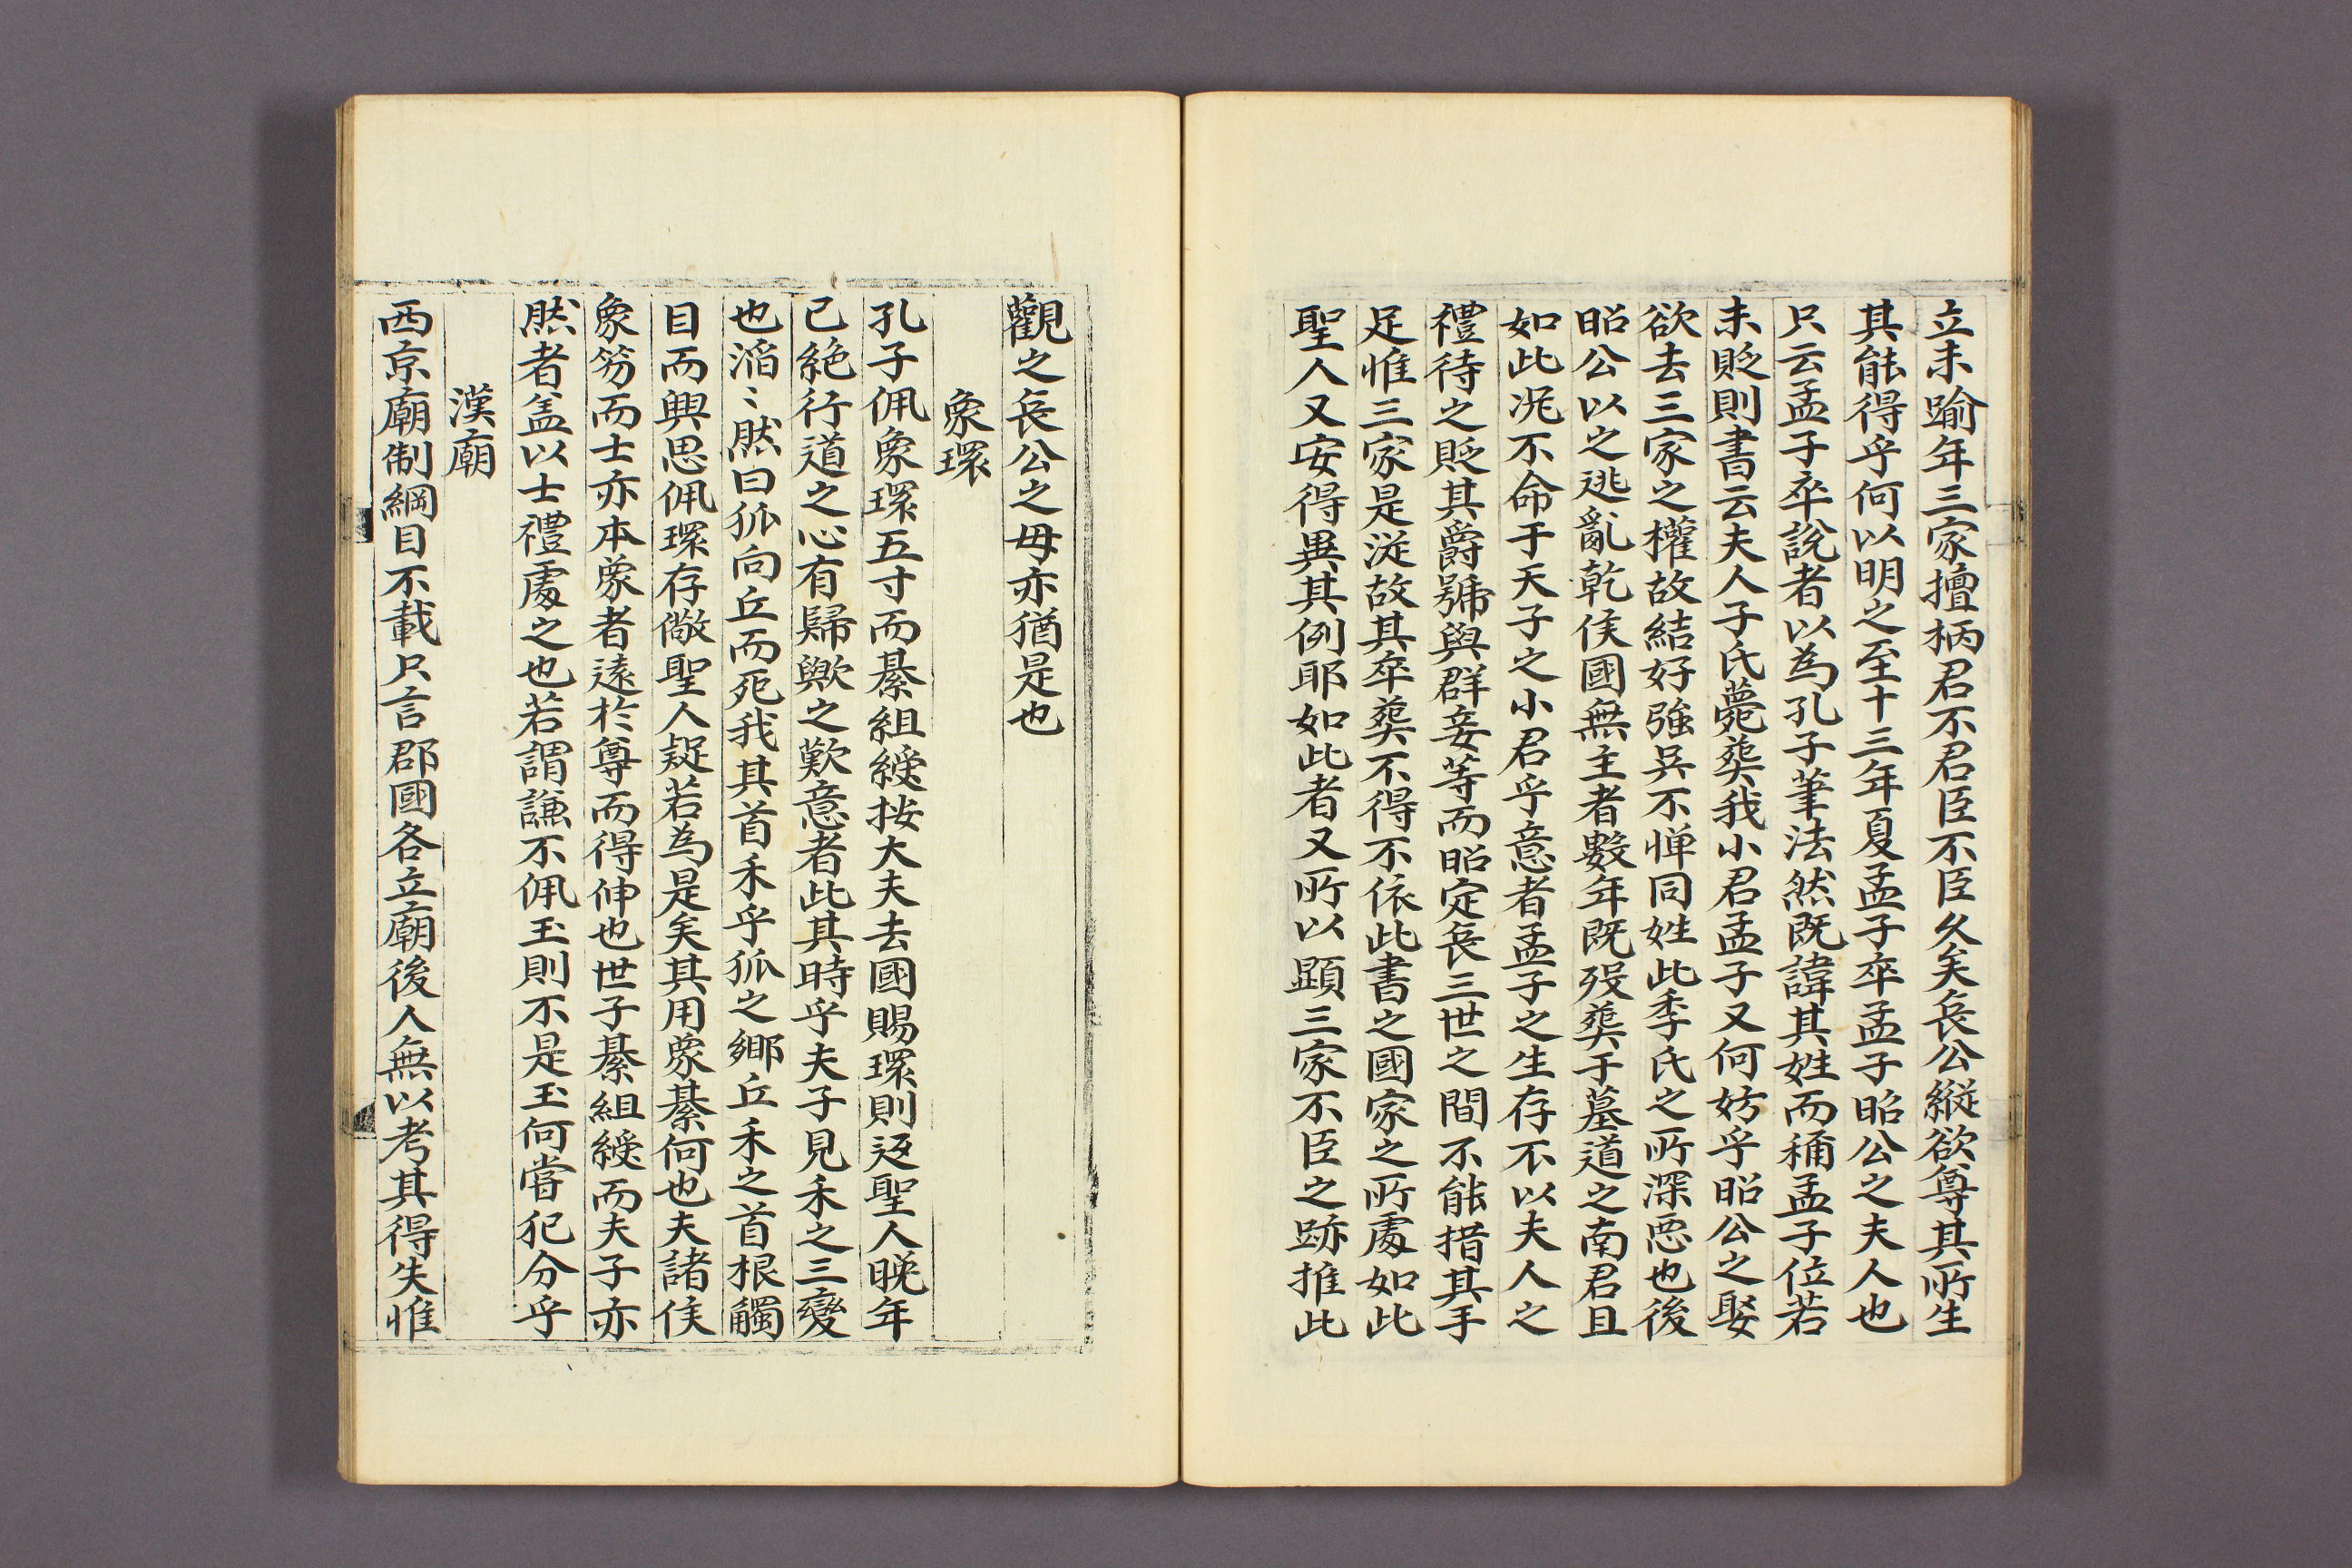 立未踰年三家擅柄君不君臣不臣久矣哀公縱欲尊其所生
其能得乎何以明之至十三年夏孟子卒孟子昭公之夫人也
只云孟子卒說者以為孔子筆法然既諱其姓而稱孟子位若
未貶則書云夫人子氏薨葬我小君孟子又何妨乎昭公之娶
欲去三家之權故結好強吳不憚同姓此季氏之所深惡也後
昭公以之逃亂乾侯國無主者數年既歿葬于墓道之南君且
如此况不命于天子之小君乎意者孟子之生存不以夫人之
禮待之貶其爵號與群妾等而昭定哀三世之間不能措其手
足惟三家是從故其卒葬不得不依此書之國家之所處如此
聖人又安得異其例耶如此者又所以顯三家不臣之跡推此
觀之哀公之母亦猶是也
象環
孔子佩象環五寸而綦組綬按大夫去國賜環則返聖人晚年
已絶行道之心有歸歟之歎意者此其時乎夫子見禾之三變
也滔〻然曰狐向丘而死我其首禾乎狐之鄉丘禾之首根觸
目而興思佩環存儆聖人疑若為是矣其用象綦何也夫諸侯
象笏而士亦本象者遠於尊而得伸也世子綦組綬而夫子亦
然者盖以士禮處之也若謂謙不佩玉則不是玉何嘗犯分乎
漢廟
西京廟制綱目不載只言郡國各立廟後人無以考其得失惟